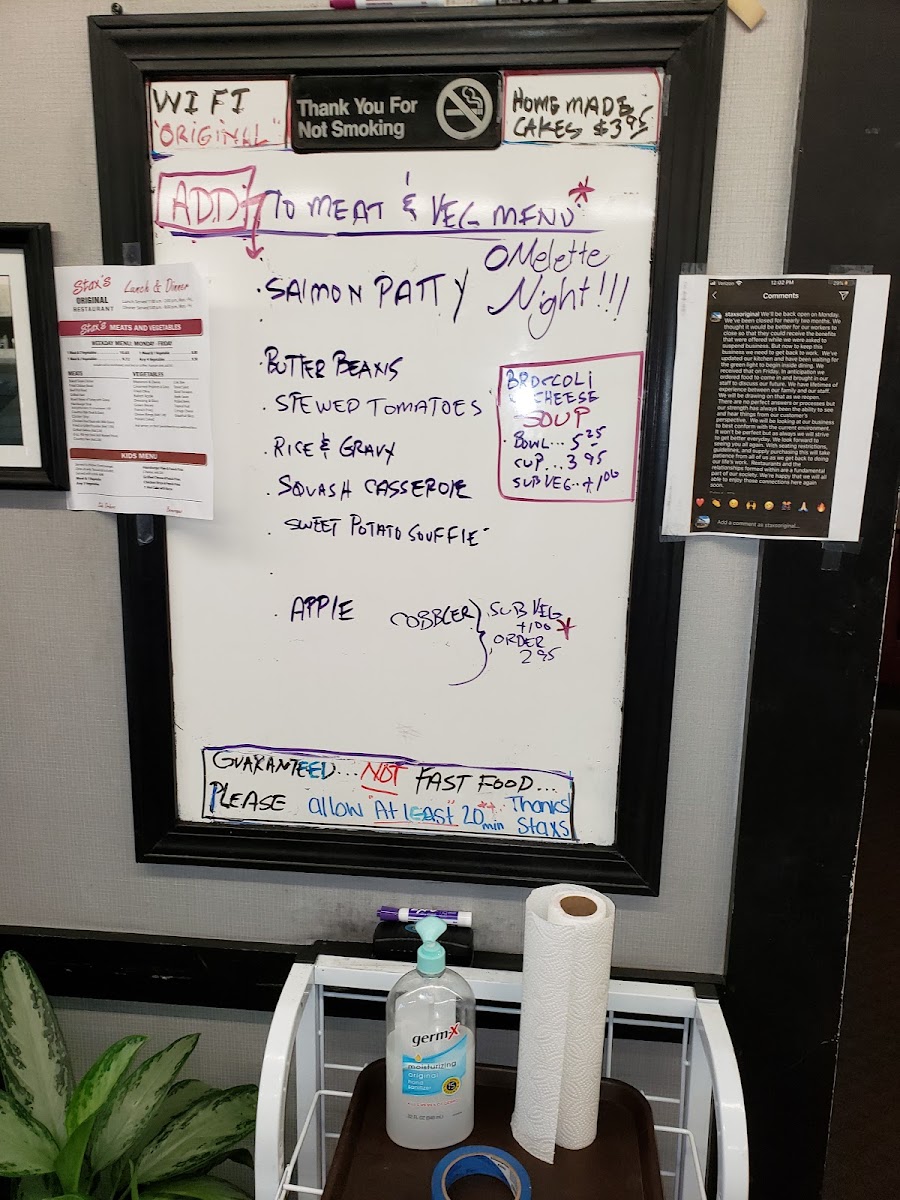 WI FI
"ORIGINAL"
Thank You For
Not Smoking
HOMEMADE
CAKES $3.95
ADD TO MEAT & VEG MENU *
OMelette
Night!!!
· SALMON PATTY
BUTTER BEANS
· STEWED TOMATOES
· RICE & GRAVY
· SQUASH CASSEROLE
· SWEET POTATO SOUFFLE
· APPLE COBBLER } SUB VEG
+1.00 *
ORDER
2.95
BROCCOLI
& CHEESE
SOUP
· BOWL... 5.25
· CUP... 3.95
SUB VEG.. +1.00
GUARANTEED... NOT FAST FOOD...
PLEASE allow "At LEAST" 20 min ** Thanks
Staxs
Stax's
ORIGINAL
RESTAURANT
Lunch & Dinner
Stax's MEATS AND VEGETABLES
WEEKDAY MENU: MONDAY - FRIDAY
MEATS
VEGETABLES
KIDS MENU
Verizon
12:02 PM
28%
Comments
staxsoriginal We'll be back open on Monday.
We've been closed for nearly two months. We
thought it would be better for our workers to
close so that they could receive the benefits
that were offered while we were asked to
suspend business. But now to keep this
business we need to get back to work. We've
updated our kitchen and have been waiting for
the green light to begin inside dining. We
received that on Friday. In anticipation we
ordered food to come in and brought in our
staff to discuss our future. We have lifetimes of
experience between our family and our staff.
We will be drawing on that as we reopen.
There are no perfect answers or processes but
our strength has always been the ability to see
and hear things from our customer's
perspective. We will be looking at our business
to best conform with the current environment.
It won't be perfect but as always we will strive
to get better everyday. We look forward to
seeing you all again. With seating restrictions,
guidelines, and supply purchasing this will take
patience from all of us as we get back to doing
our life's work. Restaurants and the
relationships formed within are a fundamental
part of our society. We're happy that we will all
able to enjoy those connections here again
soon.
Add a comment as staxsoriginal...
germ-x
moisturizing
original
hand
sanitizer